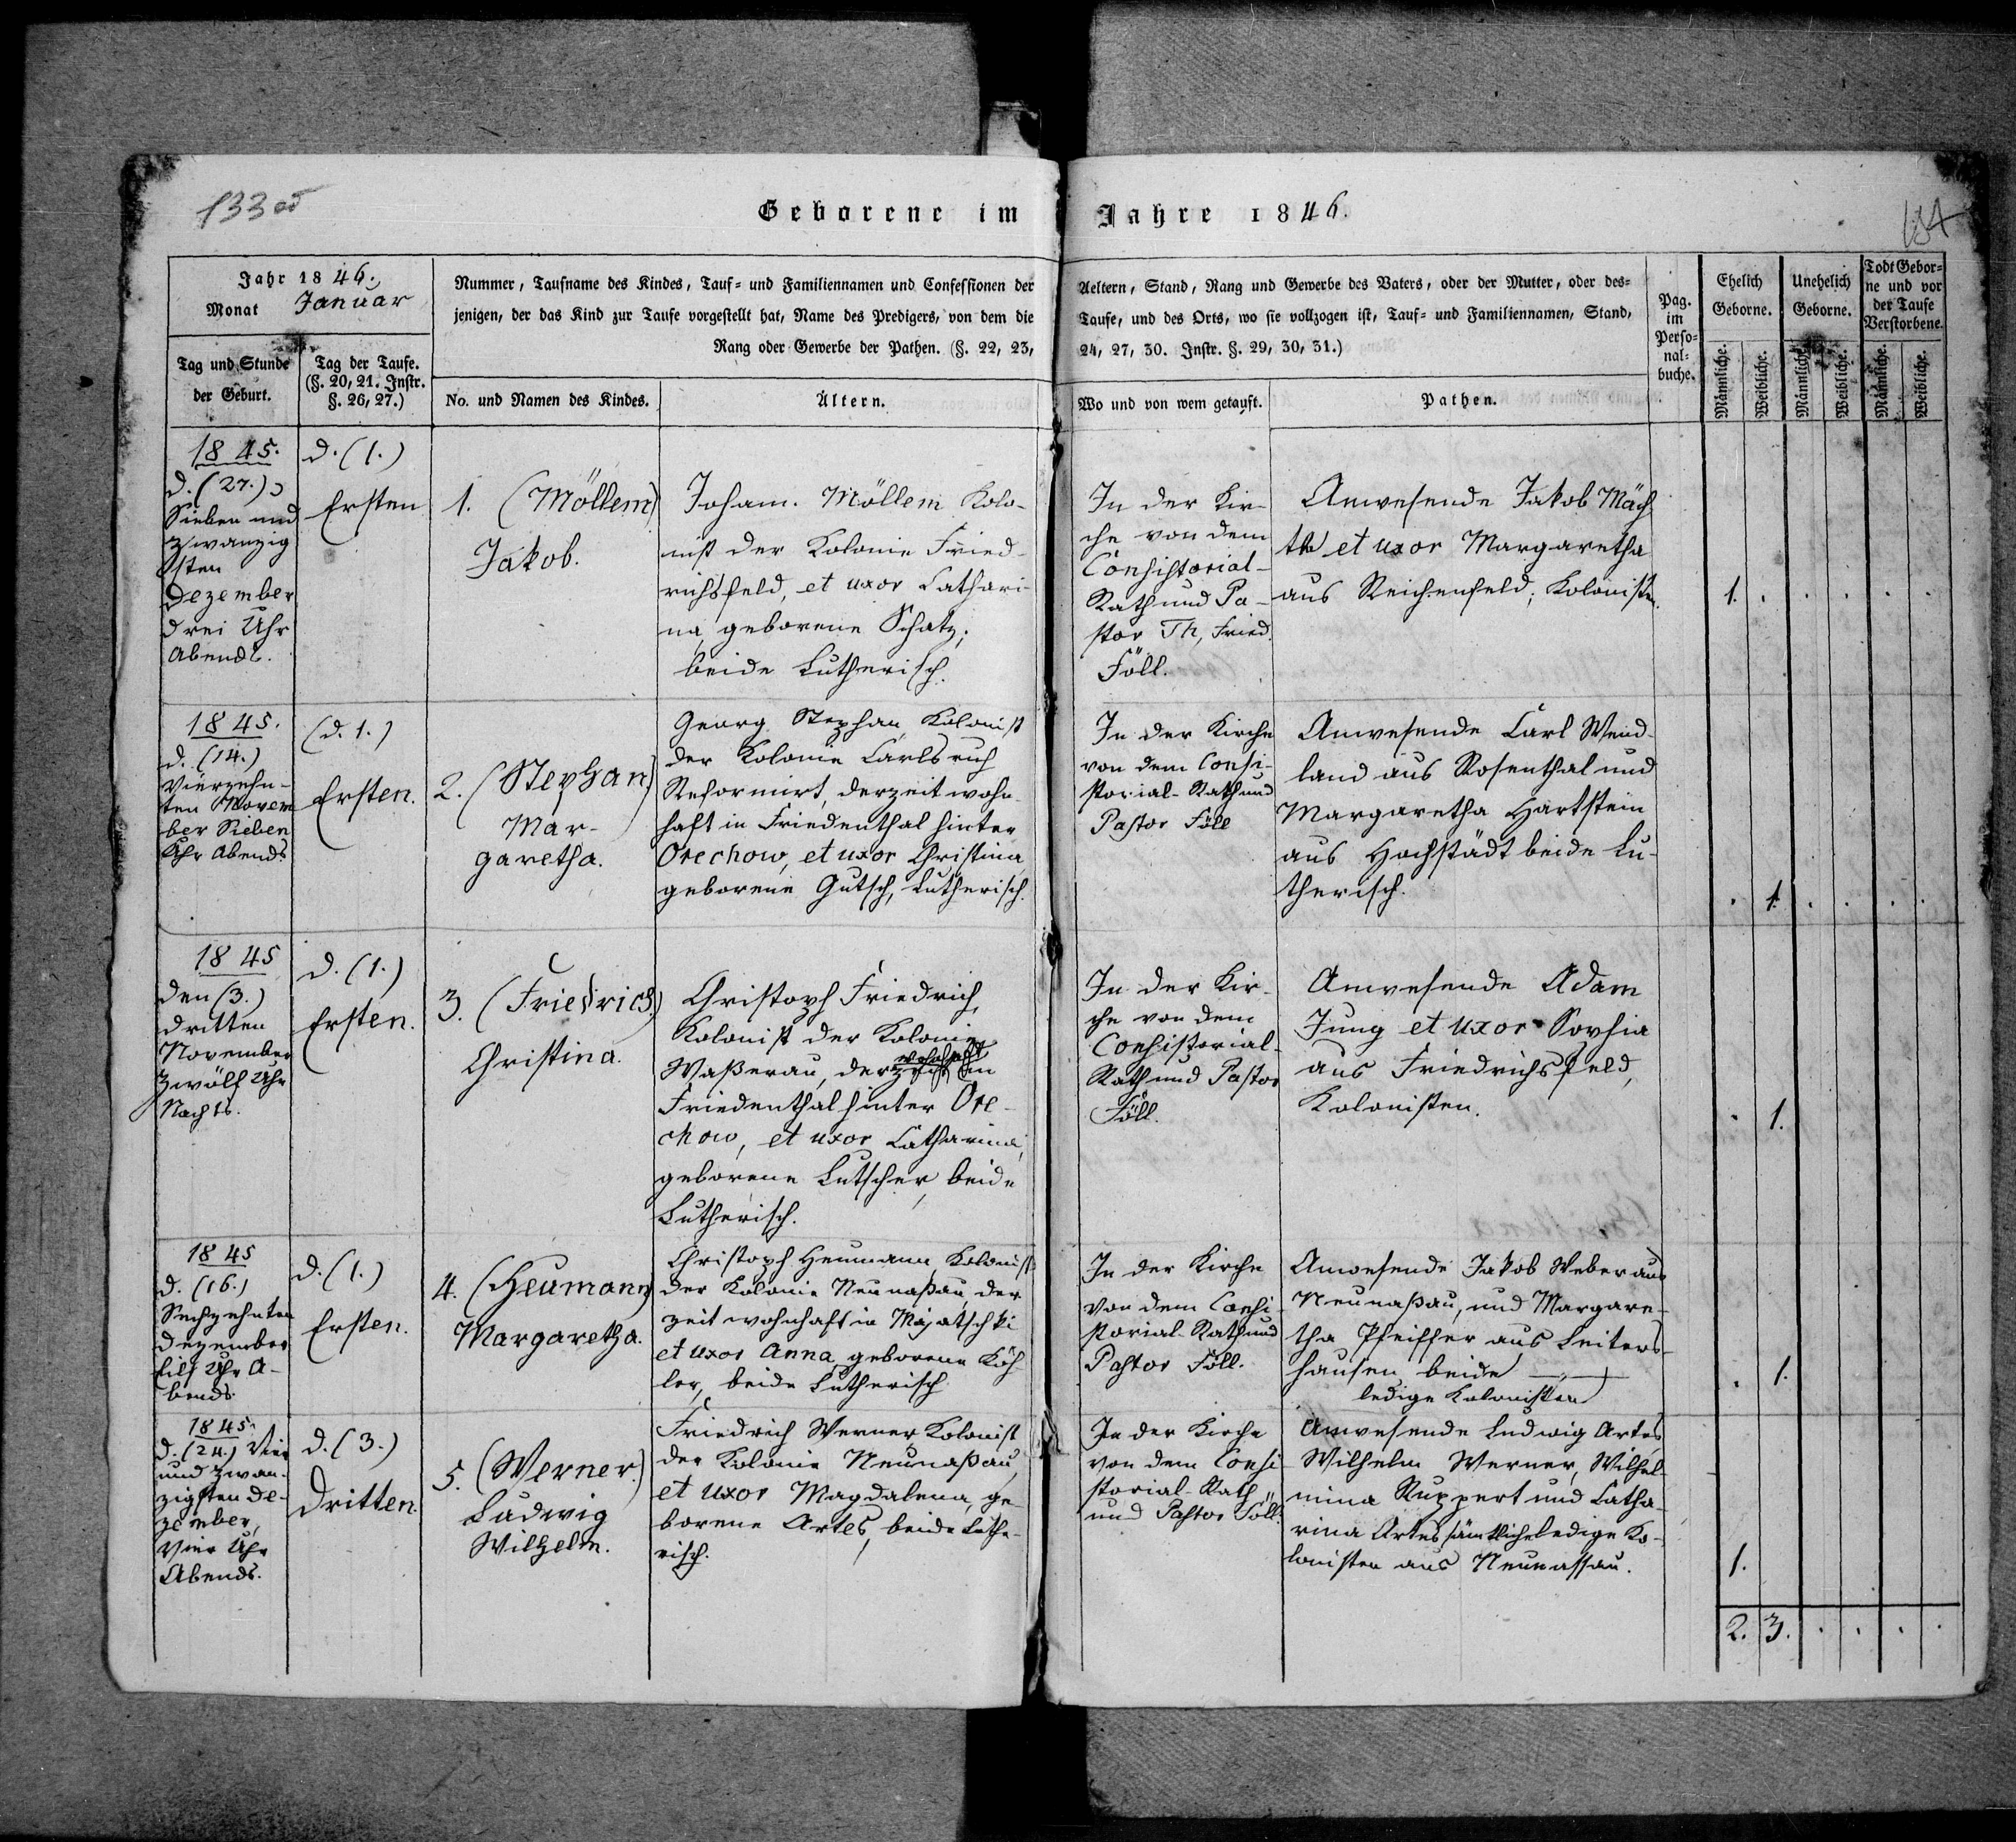 133 об
134
Geborene im Jahre 1846.
Jahr 1846.
Monat Januar
Nummer, Taufname des Kindes, Tauf- und Familiennamen und Confessionen der
Aeltern, Stand, Rang und Gewerbe des Vaters, oder der Mutter, oder des-
jenigen, der das Kind zur Taufe vorgestellt hat, Name des Predigers, von dem die
Taufe, und des Orts, wo sie vollzogen ist, Tauf- und Familiennamen, Stand,
Rang oder Gewerbe der Pathen. (§. 22, 23,
24, 27, 30. Instr. §. 29, 30, 31.)
Pag.
im
Perso-
nal-
buche.
Ehelich
Geborne.
Unehelich
Geborne.
Todt Gebor-
ne und vor
der Taufe
Verstorbene.
Männliche.
Weibliche.
Männliche.
Weibliche.
Männliche.
Weibliche.
Tag und Stunde
der Geburt.
Tag der Taufe.
(§. 20, 21. Instr.
§. 26, 27.)
No. und Namen des Kindes.
Ältern.
Wo und von wem getauft.
Pathen.
1845.
d. (27.)
Sieben und
zwanzig
sten
Dezember
drei Uhr
Abends.
d. (1.)
Ersten
1. (Möllem)
Jakob.
Joham. Möllem Kolo-
nist der Kolonie Fried-
richsfeld, et uxor Cathari-
na, geborene Schatz,
beide Lutherisch.
In der Kir-
che von dem
Consistorial-
Rath und Pa-
stor Th, Fried.
Föll.
Anwesende Jakob Mäch
tle et uxor Margaretha
aus Reichenfeld, Kolonisten.
1. . . . . .
1845.
d. (14.)
Vierzehn-
ten Novem
ber Sieben
Uhr Abends
(d. 1.)
Ersten.
2. (Stephan)
Mar-
garetha.
Georg Stephan, Kolonist
der Kolonie Carlsruh
Reformirt, derzeit wohn-
haft in Friedenthal hinter
Orechow, et uxor Christina
geborene Gutsch, Lutherisch.
In der Kirche
von dem Consi-
storial-Rath und
Pastor Föll
Anwesende Carl Weid-
land aus Rosenthal und
Margaretha Hartstein
aus Hochstädt beide Lu-
therisch.
. 1. . . . .
1845
den (3.)
dritten
November
zwölf Uhr
Nachts.
d. (1.)
Ersten.
3. (Friedrich)
Christina.
Christoph Friedrich,
Kolonist der Kolonie
wohnhaft
Waßerau, derzeit in
Friedenthal hinter Ore-
chow, et uxor Catharina,
geborene Lutscher, beide
Lutherisch.
In der Kir-
che von dem
Consistorial-
Rath und Pastor
Föll.
Anwesende Adam
Jung et uxor Sophia
aus Friedrichsfeld,
Kolonisten.
. 1.
1845
d. (16.)
Sechzehnten
Dezember
Eilf Uhr A-
bends
d. (1.)
Ersten.
4. (Heumann)
Margaretha.
Christoph Heumann Kolonist
der Kolonie Neunaßau, der
zeit wohnhaft in Majatschki
et uxor Anna, geborene Köh
ler, beide Lutherisch
In der Kirche
von dem Consi-
storial-Rath und
Pastor Föll.
Anwesende Jakob Weber aus
Neunaßau, und Margare-
tha Pfeiffer aus Leiters-
hausen, beide
ledige Kolonisten
. 1.
1845.
d. (24.) Vier
und zwan-
zigsten De-
zember,
Vier Uhr
Abends.
d. (3.)
Dritten.
5. (Werner.)
Ludwig
Wilhelm.
Friedrich Werner Kolonist
der Kolonie Neunaßau,
et uxor Magdalena, ge-
borene Artes, beide Luthe-
risch.
In der Kirche
von dem Consi
storial-Rath
und Pastor Föll.
Anwesende Ludwig Artes,
Wilhelm Werner, Wilhel-
mina Ruppert und Catha-
rina Artes sämtliche ledige Ko-
lonisten aus Neunassau.
1.
2. 3. . . . .